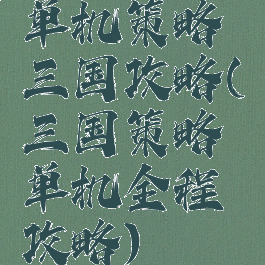 单机策略
三国攻略(
三国策略
单机全程
攻略)